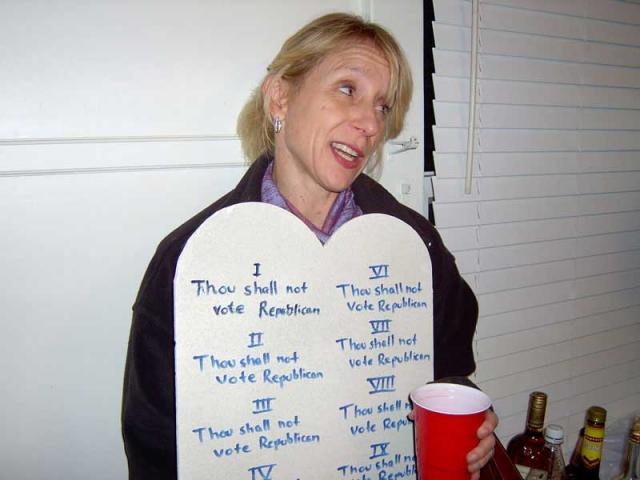 I
Thou shall not
vote Republican
II
Thou shall not
vote Republican
III
Thou shall not
vote Republican
IV
VI
Thou shall not
vote Republican
VII
Thou shall not
vote Republican
VIII
Thou shall
vote
IX
Thou shall